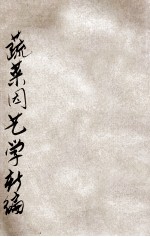 蔬菜园艺学新编